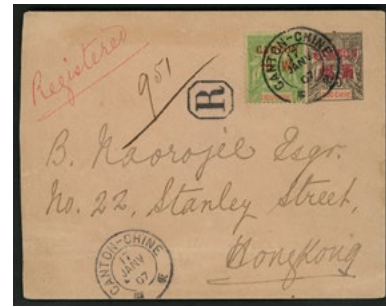 Registered
951
R
CANTON-CHINE
17
JANV
07
B. Naorojee Esqr.
No. 22, Stanley Street,
Hongkong
CANTON-CHINE
17
JANV
07